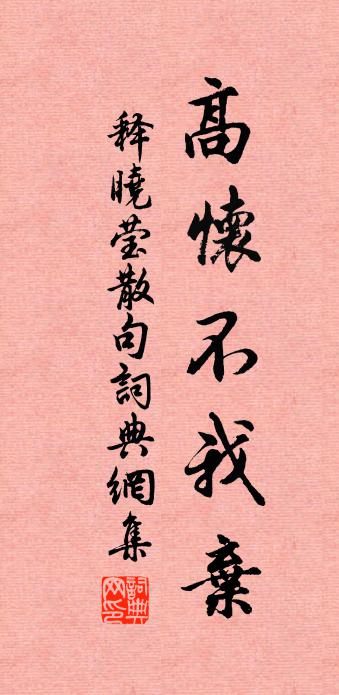 高懷不我棄
释曉莹散句詞典網集
詞典网印